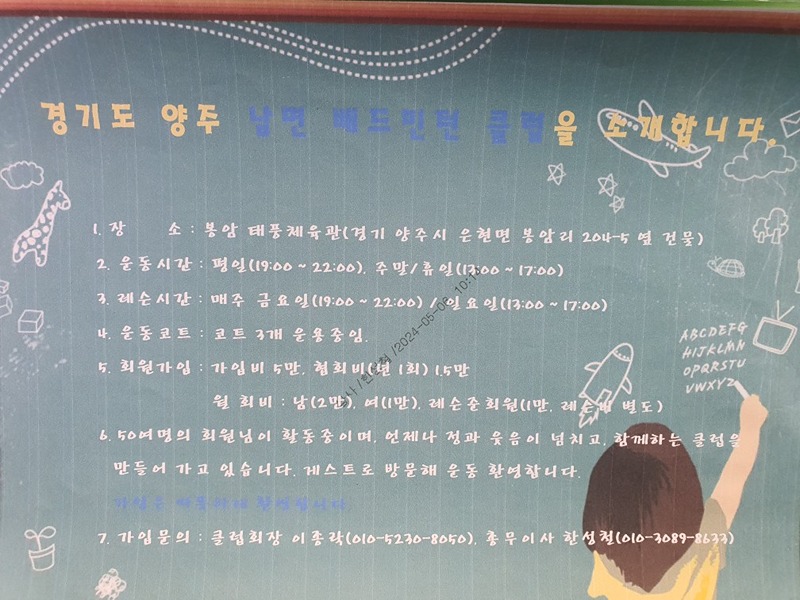 경기도 양주 남면 배드민턴 클럽을 소개합니다.
1. 장 소 : 봉암 태풍체육관(경기 양주시 은현면 봉암리 204-5 옆 건물)
2. 운동시간 : 평일(19:00 ~ 22:00), 주말/휴일(13:00 ~ 17:00)
3. 레슨시간 : 매주 금요일(19:00 ~ 22:00) / 일요일(13:00 ~ 17:00)
4. 운동코트 : 코트 3개 운용중임.
5. 회원가입 : 가입비 5만, 협회비(년 1회) 1.5만
월 회비 : 남(2만), 여(1만), 레슨준회원(1만, 레슨비 별도)
6. 50여명의 회원님이 활동중이며, 언제나 정과 웃음이 넘치고, 함께하는 클럽을
만들어 가고 있습니다. 게스트로 방문해 운동 환영합니다.
7. 가입문의 : 클럽회장 이종락(010-5230-8050), 총무이사 한성철(010-3089-8633)
/2024-05-08
ABCDEFG
HIJKLMN
OPQRSTU
VWXYZ